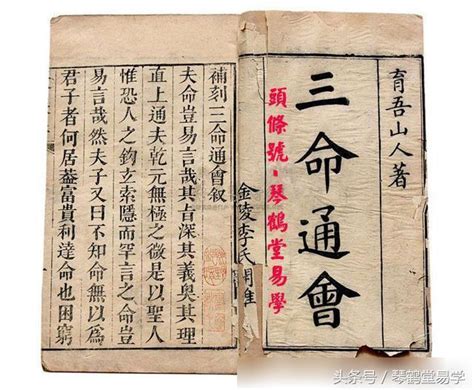 育吾山人著
三命通會
頭條號·琴鶴堂易學
金陵李氏
補刻三命通會叙
夫命豈易言哉其旨深其義奧其理
直上通夫乾元無極之微是以聖人
惟恐人之鉤玄索隱而罕言之命豈
易言哉然夫子又曰不知命無以為
君子者何居蓋富貴利達命也困窮
头条号 / 琴鹤堂易学